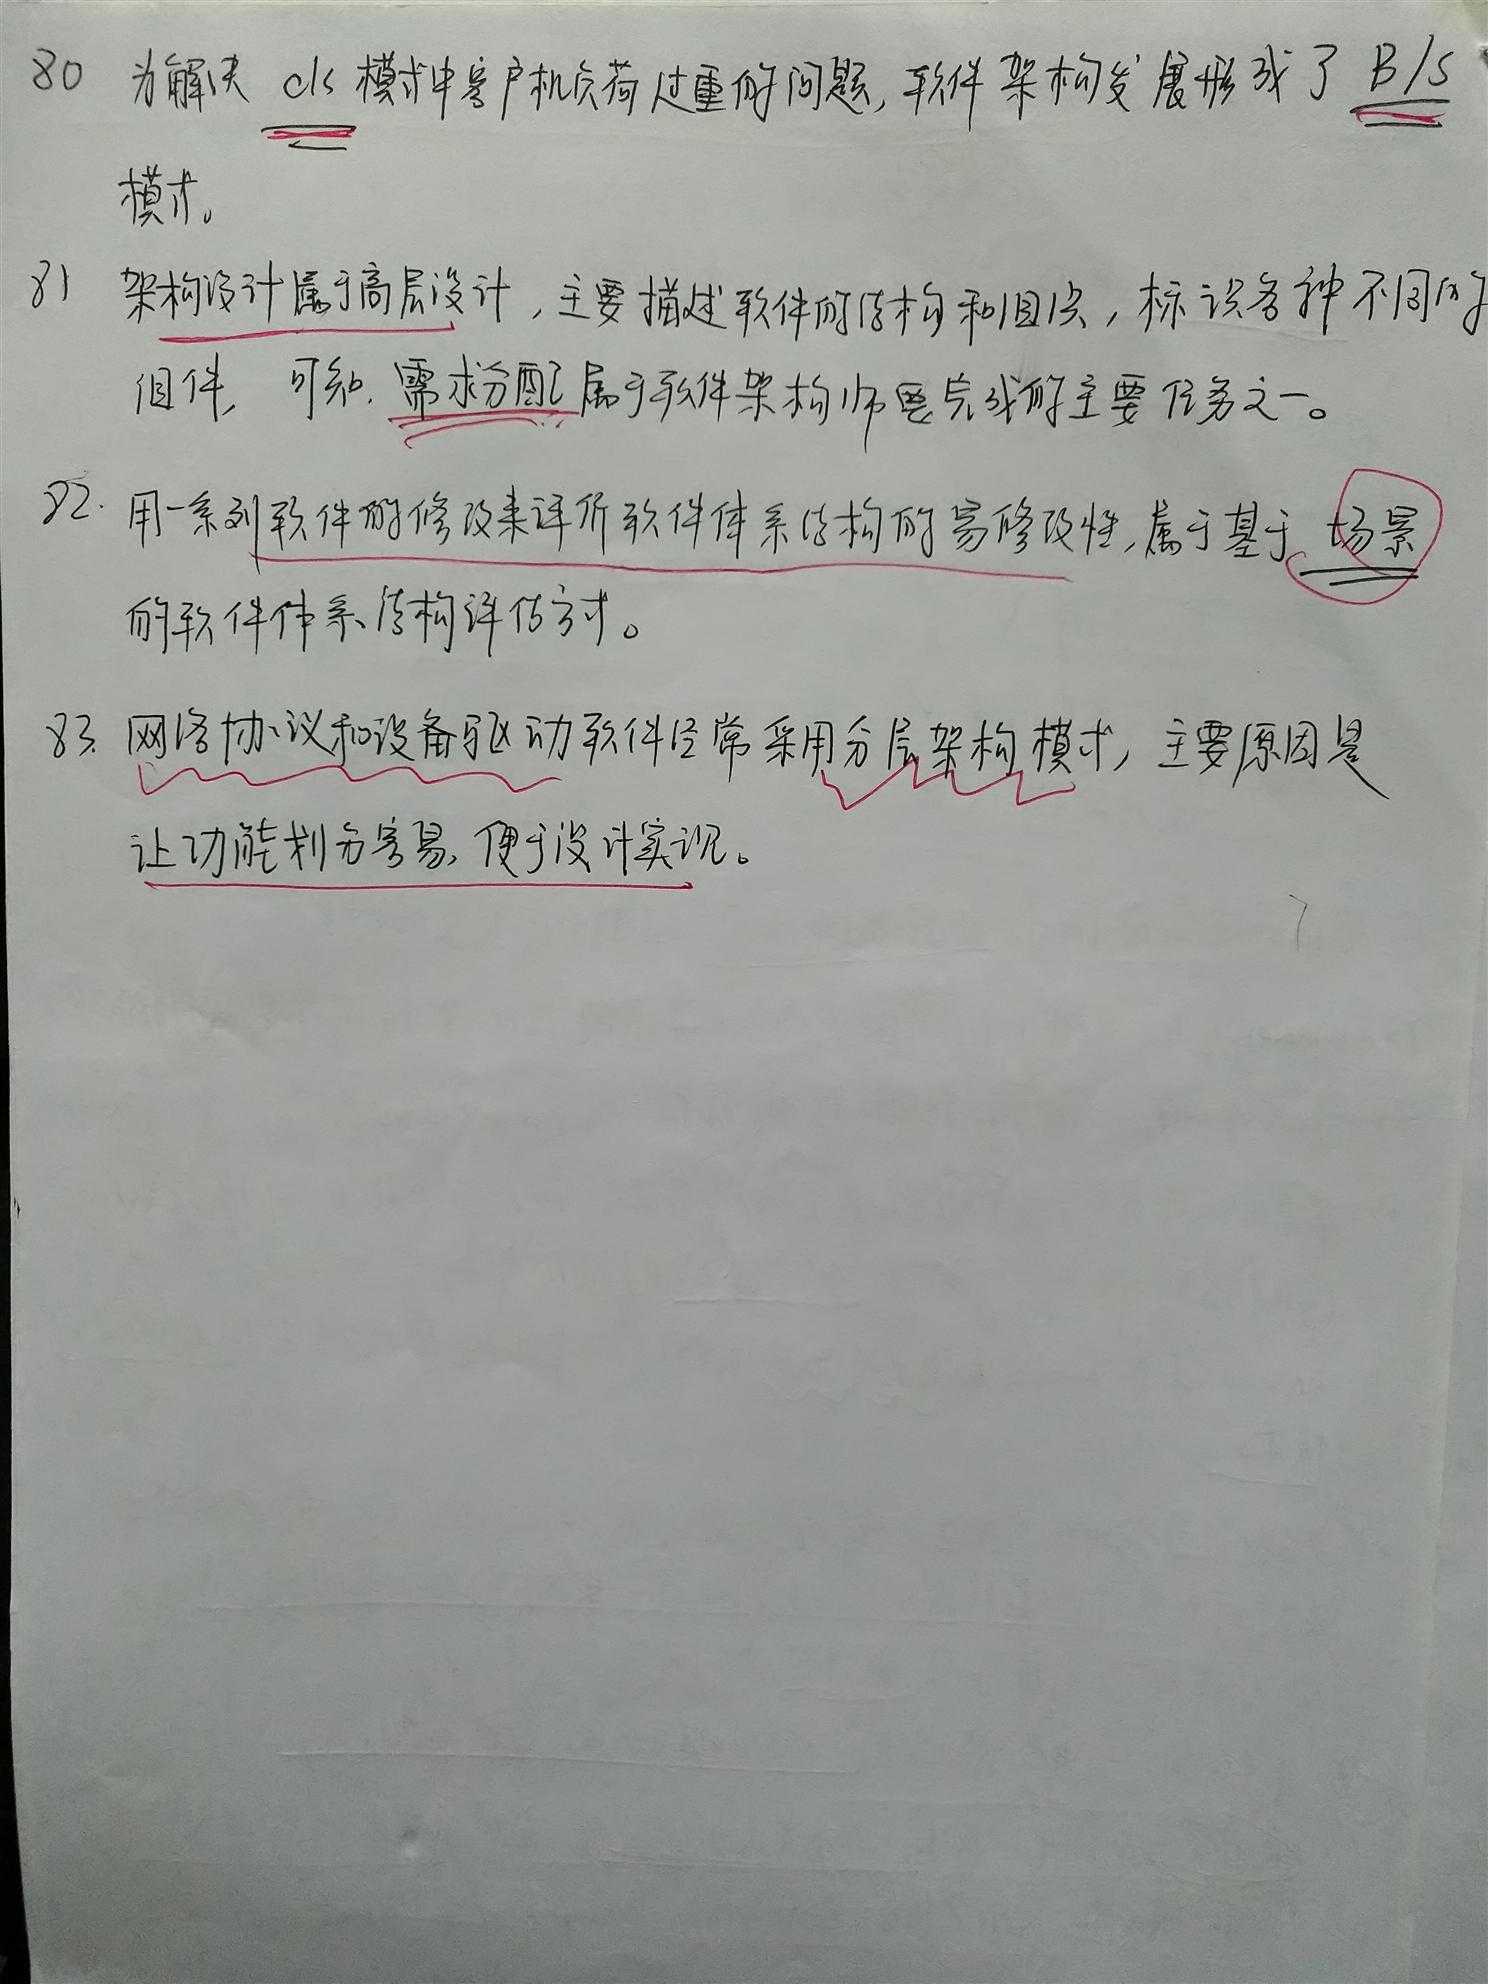 80 为解决 c/s 模式中客户机负荷过重的问题, 软件架构发展形成了 B/S
模式。
81 架构设计属于高层设计, 主要描述软件的结构和组织, 标识各种不同的
组件, 可知, 需求分配属于软件架构师要完成的主要任务之一。
82. 用一系列软件的修改来评价软件体系结构的易修改性, 属于基于 场景
的软件体系结构评估方式。
83. 网络协议和设备驱动软件经常采用分层架构模式, 主要原因是
让功能划分容易, 便于设计实现。